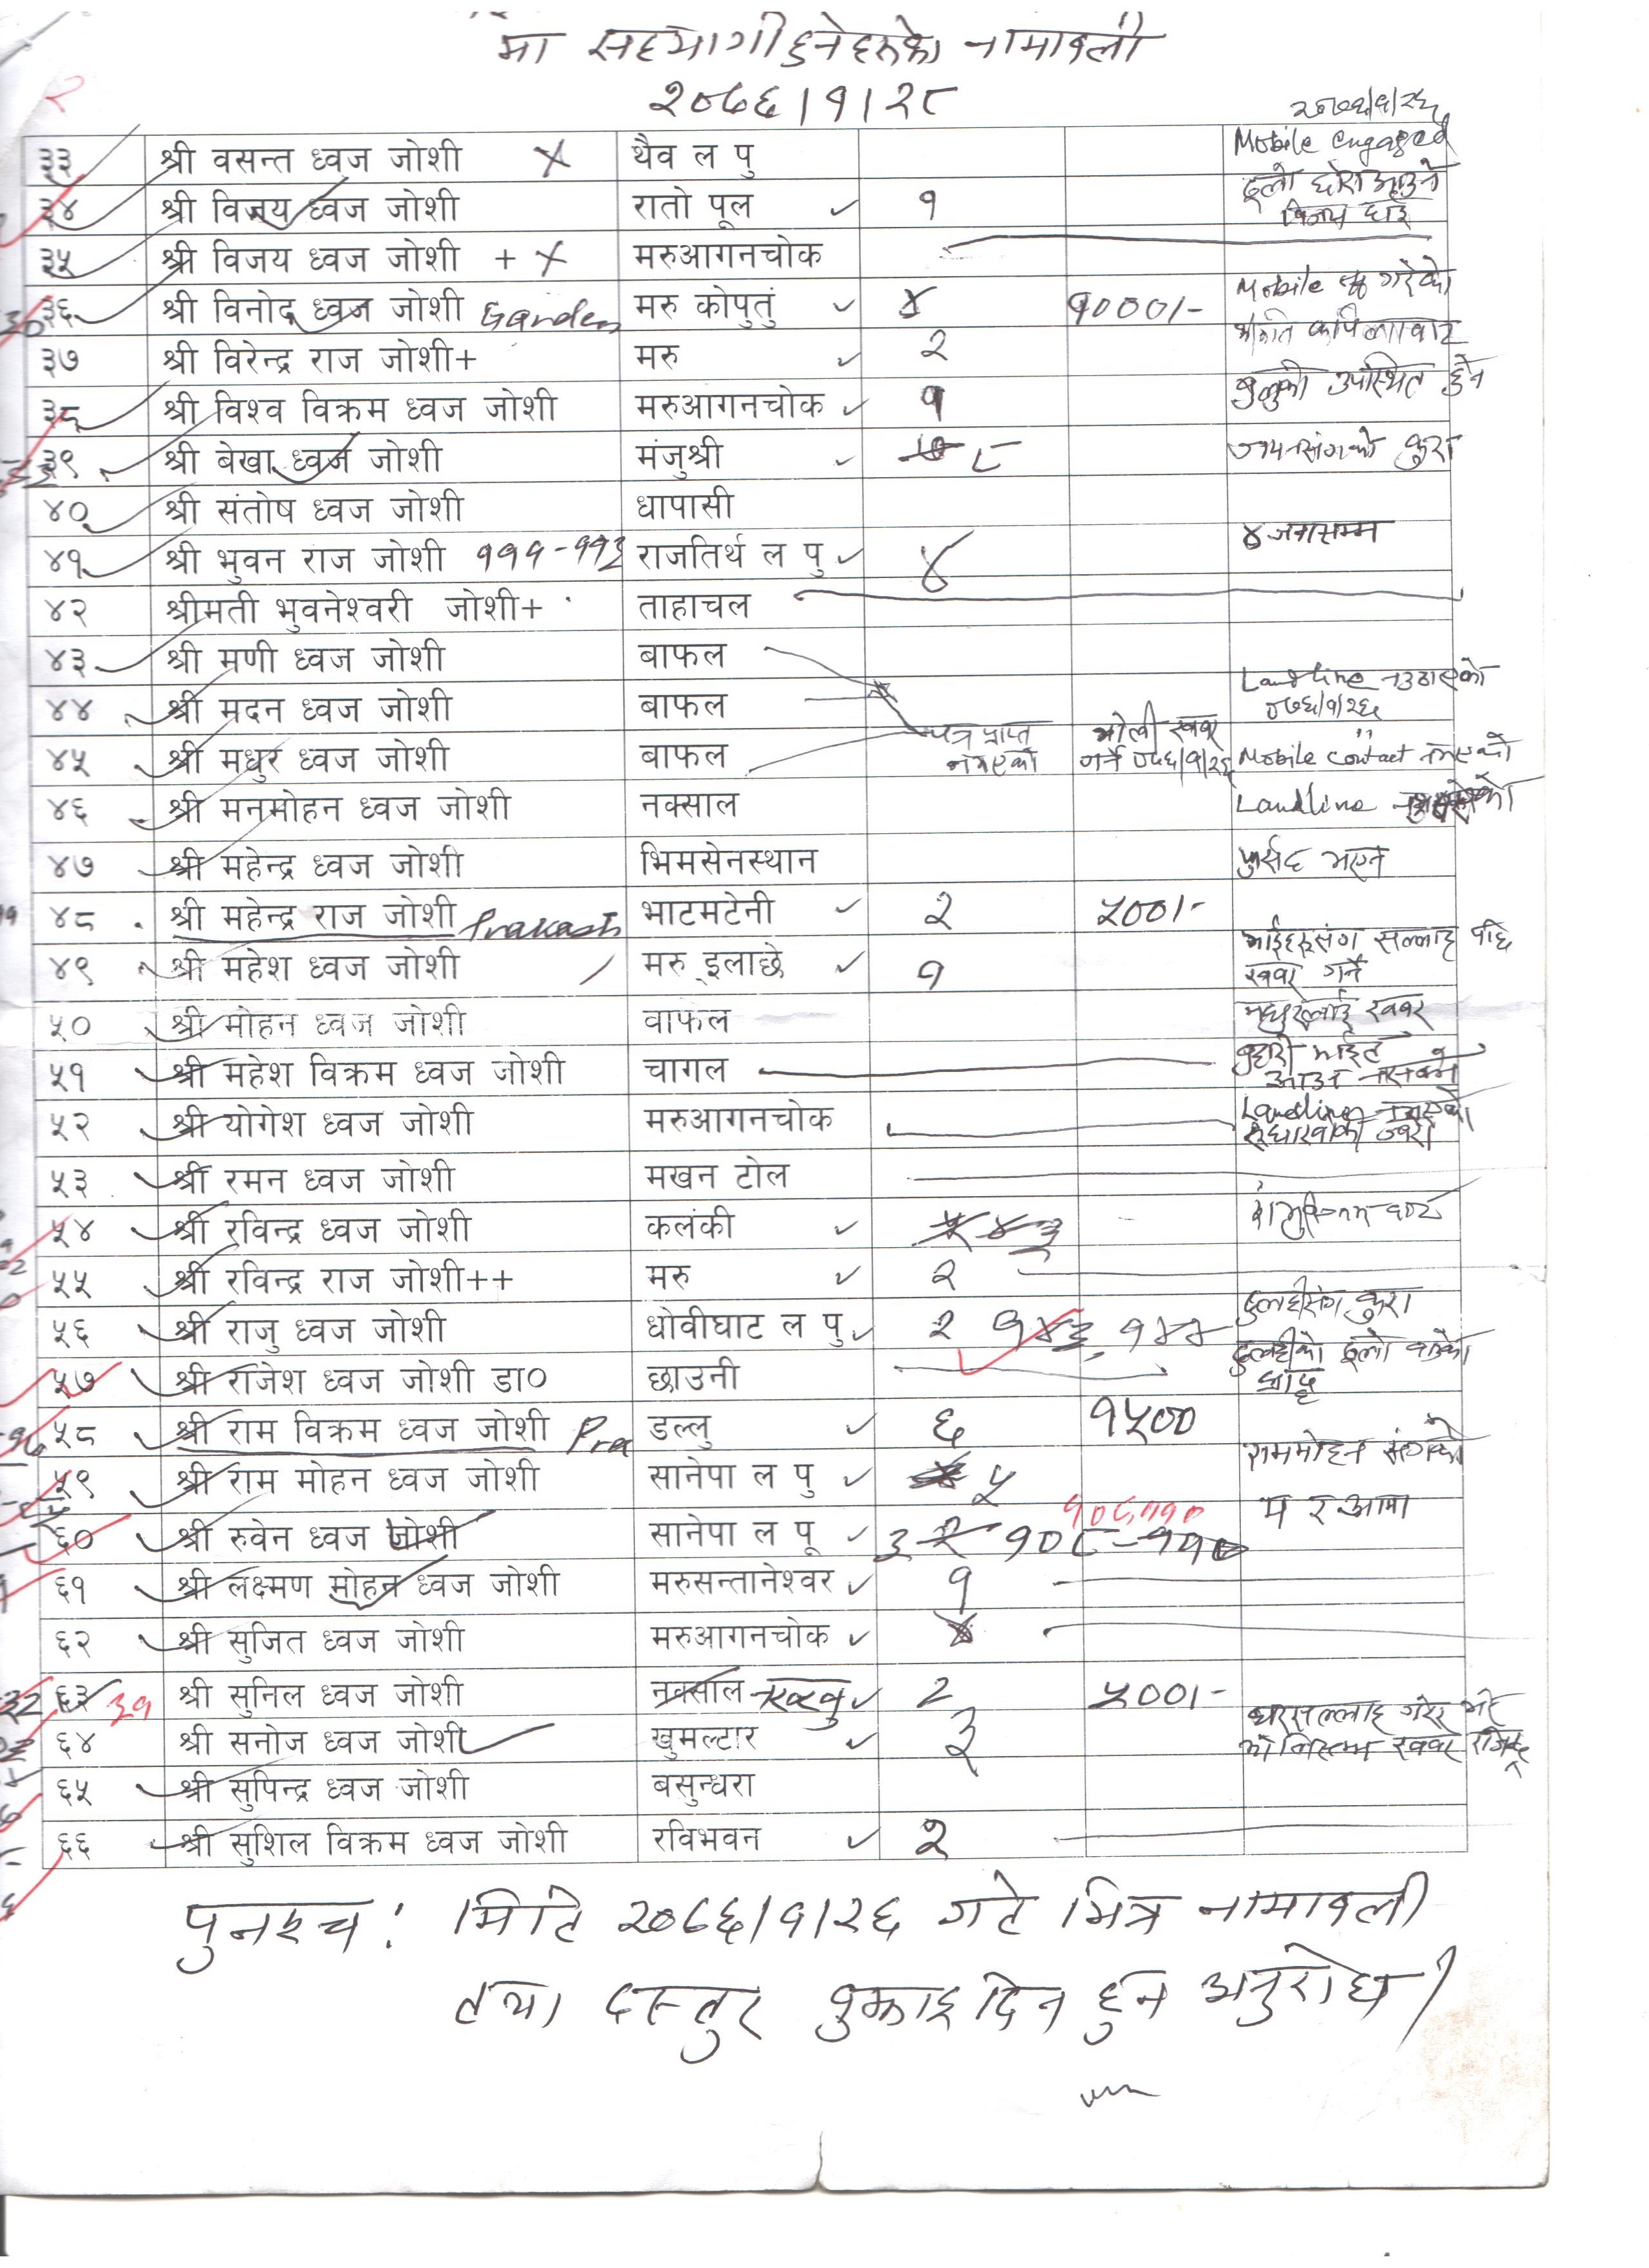 मा सहभागी हुनेहरुको नामावली
२०७६।१।२८
२०७६/१/२६
३३ श्री वसन्त ध्वज जोशी × थैव ल पु Mobile engaged
३४ श्री विजय ध्वज जोशी रातो पूल ✓ १
३५ श्री विजय ध्वज जोशी + × मरुआगनचोक
३६ श्री विनोद ध्वज जोशी Garden मरु कोपुतुं ✓ ४ १०००।- Mobile गरेको
३७ श्री विरेन्द्र राज जोशी+ मरु ✓ २
३८ श्री विश्व विक्रम ध्वज जोशी मरुआगनचोक ✓ १ उपस्थित हुने
३९ श्री बेखा ध्वज जोशी मंजुश्री ✓ ८ कुरा
४० श्री संतोष ध्वज जोशी धापासी
४ जनासम्म
४१ श्री भुवन राज जोशी १११-११३ राजतिर्थ ल पु ✓ ४
४२ श्रीमती भुवनेश्वरी जोशी+ ताहाचल
४३ श्री मणी ध्वज जोशी बाफल
४४ श्री मदन ध्वज जोशी बाफल Landline नउठाएको
०७६/१/२६
४५ श्री मधुर ध्वज जोशी बाफल पत्र प्राप्त नभएको भोली खबर गर्ने ०७६/१/२६ Mobile contact नभएको
४६ श्री मनमोहन ध्वज जोशी नक्साल Landline
४७ श्री महेन्द्र ध्वज जोशी भिमसेनस्थान फुर्सद भएन
४८ श्री महेन्द्र राज जोशी Prakash भाटमटेनी ✓ २ ५००।-
४९ श्री महेश ध्वज जोशी मरु इलाछे ✓ १ भाईहरुसंग सल्लाह पछि
खबर गर्ने
५० श्री मोहन ध्वज जोशी वाफल मधुरलाई खबर
५१ श्री महेश विक्रम ध्वज जोशी चागल
५२ श्री योगेश ध्वज जोशी मरुआगनचोक Landline
५३ श्री रमन ध्वज जोशी मखन टोल
५४ श्री रविन्द्र ध्वज जोशी कलंकी ✓ ५ ४ ३
५५ श्री रविन्द्र राज जोशी++ मरु ✓ २
५६ श्री राजु ध्वज जोशी धोवीघाट ल पु ✓ २ १४३, १४४ दुलहीसंग कुरा
५७ श्री राजेश ध्वज जोशी डा० छाउनी
५८ श्री राम विक्रम ध्वज जोशी Pra डल्लु ✓ ६ १५००
५९ श्री राम मोहन ध्वज जोशी सानेपा ल पु ✓ ५ राममोहन संगको
१०८,११०
६० श्री रुवेन ध्वज जोशी सानेपा ल पू ✓ ३ २ १०८-११० म र आमा
६१ श्री लक्ष्मण मोहन ध्वज जोशी मरुसन्तानेश्वर ✓ १
६२ श्री सुजित ध्वज जोशी मरुआगनचोक ✓ ४
६३ ३१ श्री सुनिल ध्वज जोशी नक्साल ✓ २ ५००।-
६४ श्री सनोज ध्वज जोशी खुमल्टार ✓ ३
६५ श्री सुपिन्द्र ध्वज जोशी बसुन्धरा
६६ श्री सुशिल विक्रम ध्वज जोशी रविभवन ✓ २
पुनश्च: मिति २०७६।१।२६ गते भित्र नामावली
तथा दस्तुर बुझाइदिन हुन अनुरोध।